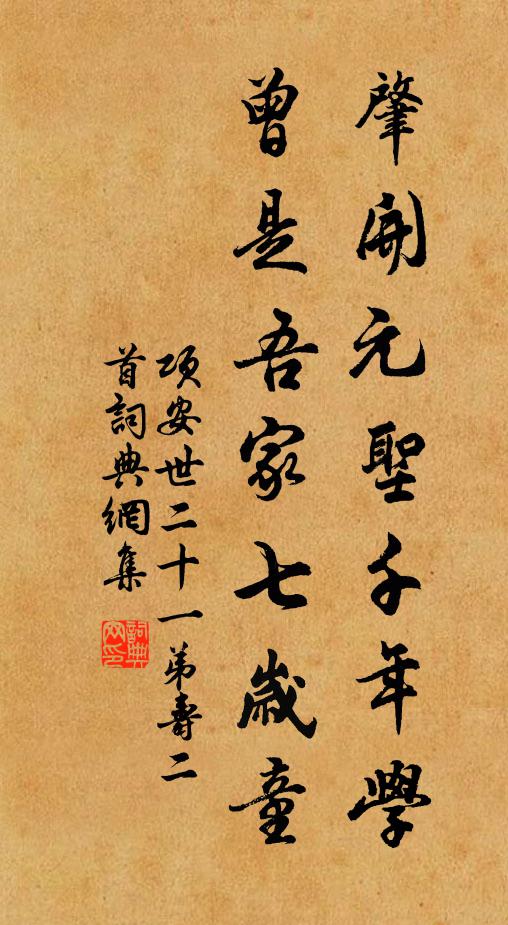 肇開元聖千年學
曾是吾家七歲童
項安世二十一弟壽二
首詞典網集
詞典網印